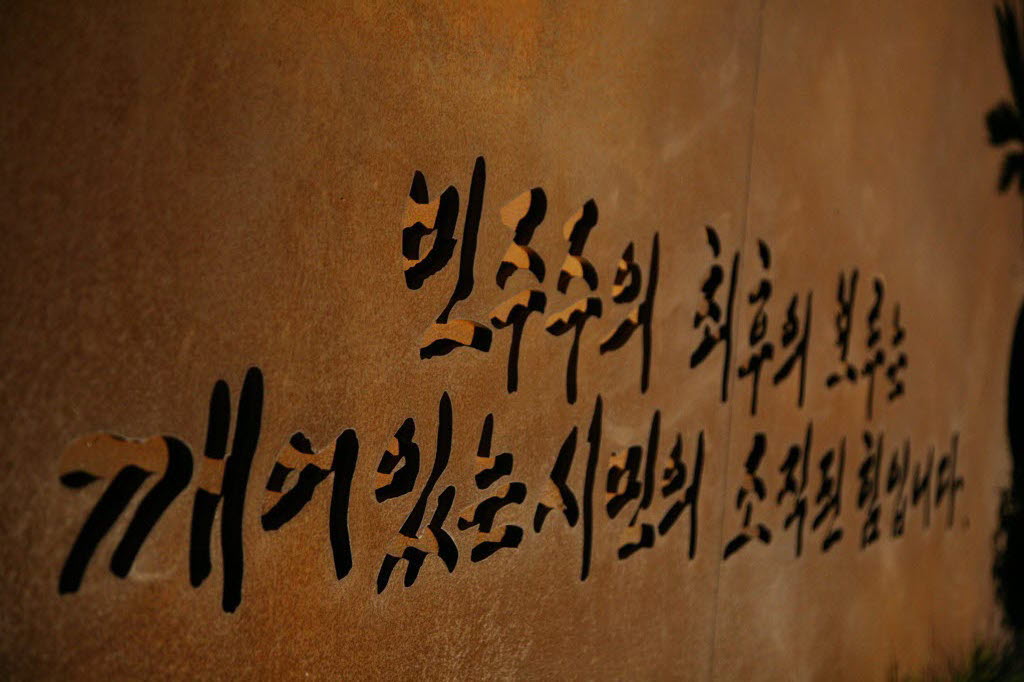 민주주의 최후의 보루는
깨어있는 시민의 조직된 힘입니다.